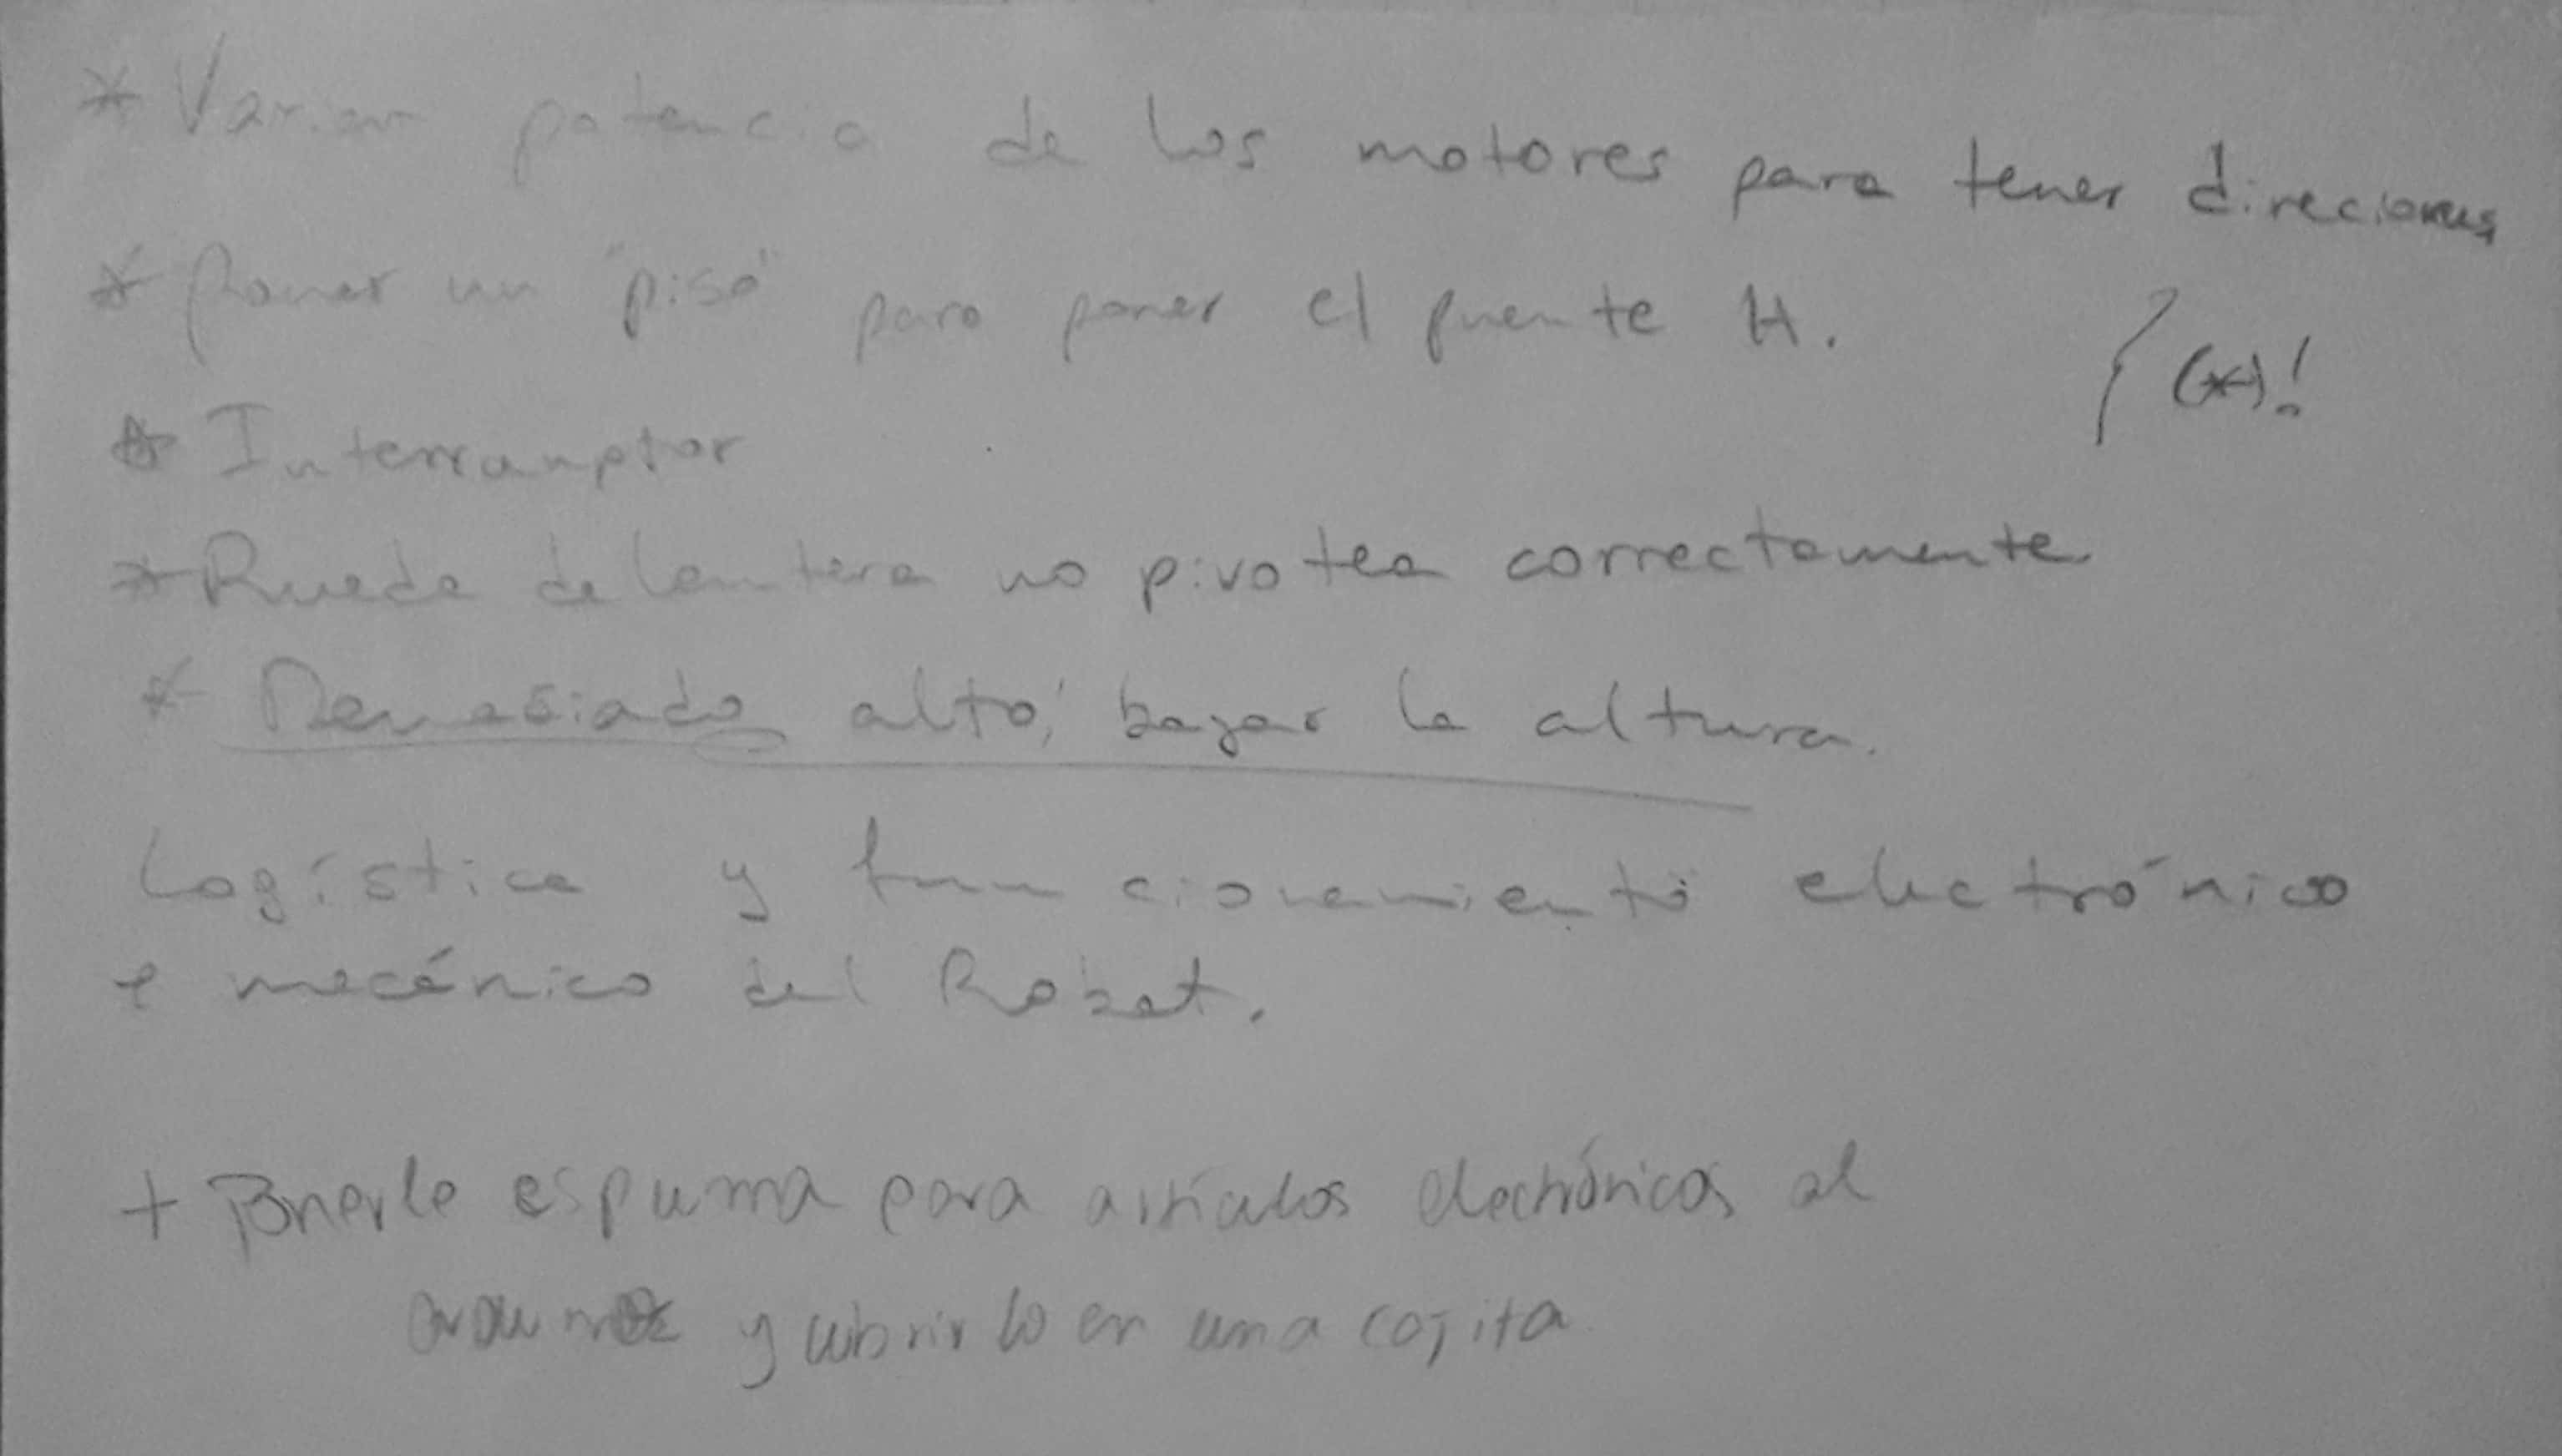 * Variar potencia de los motores para tener direciones
* Poner un "piso" para poner el puente H.
(*)!
* Interrumptor
* Rueda delantera no pivotea correctamente
* Demasiado alto, bajar la altura.
Logística y funcionamiento electrónico
e mecánico del Robot.
+ Ponerle espuma para artículos electrónicos al
y cubrirlo en una cajita